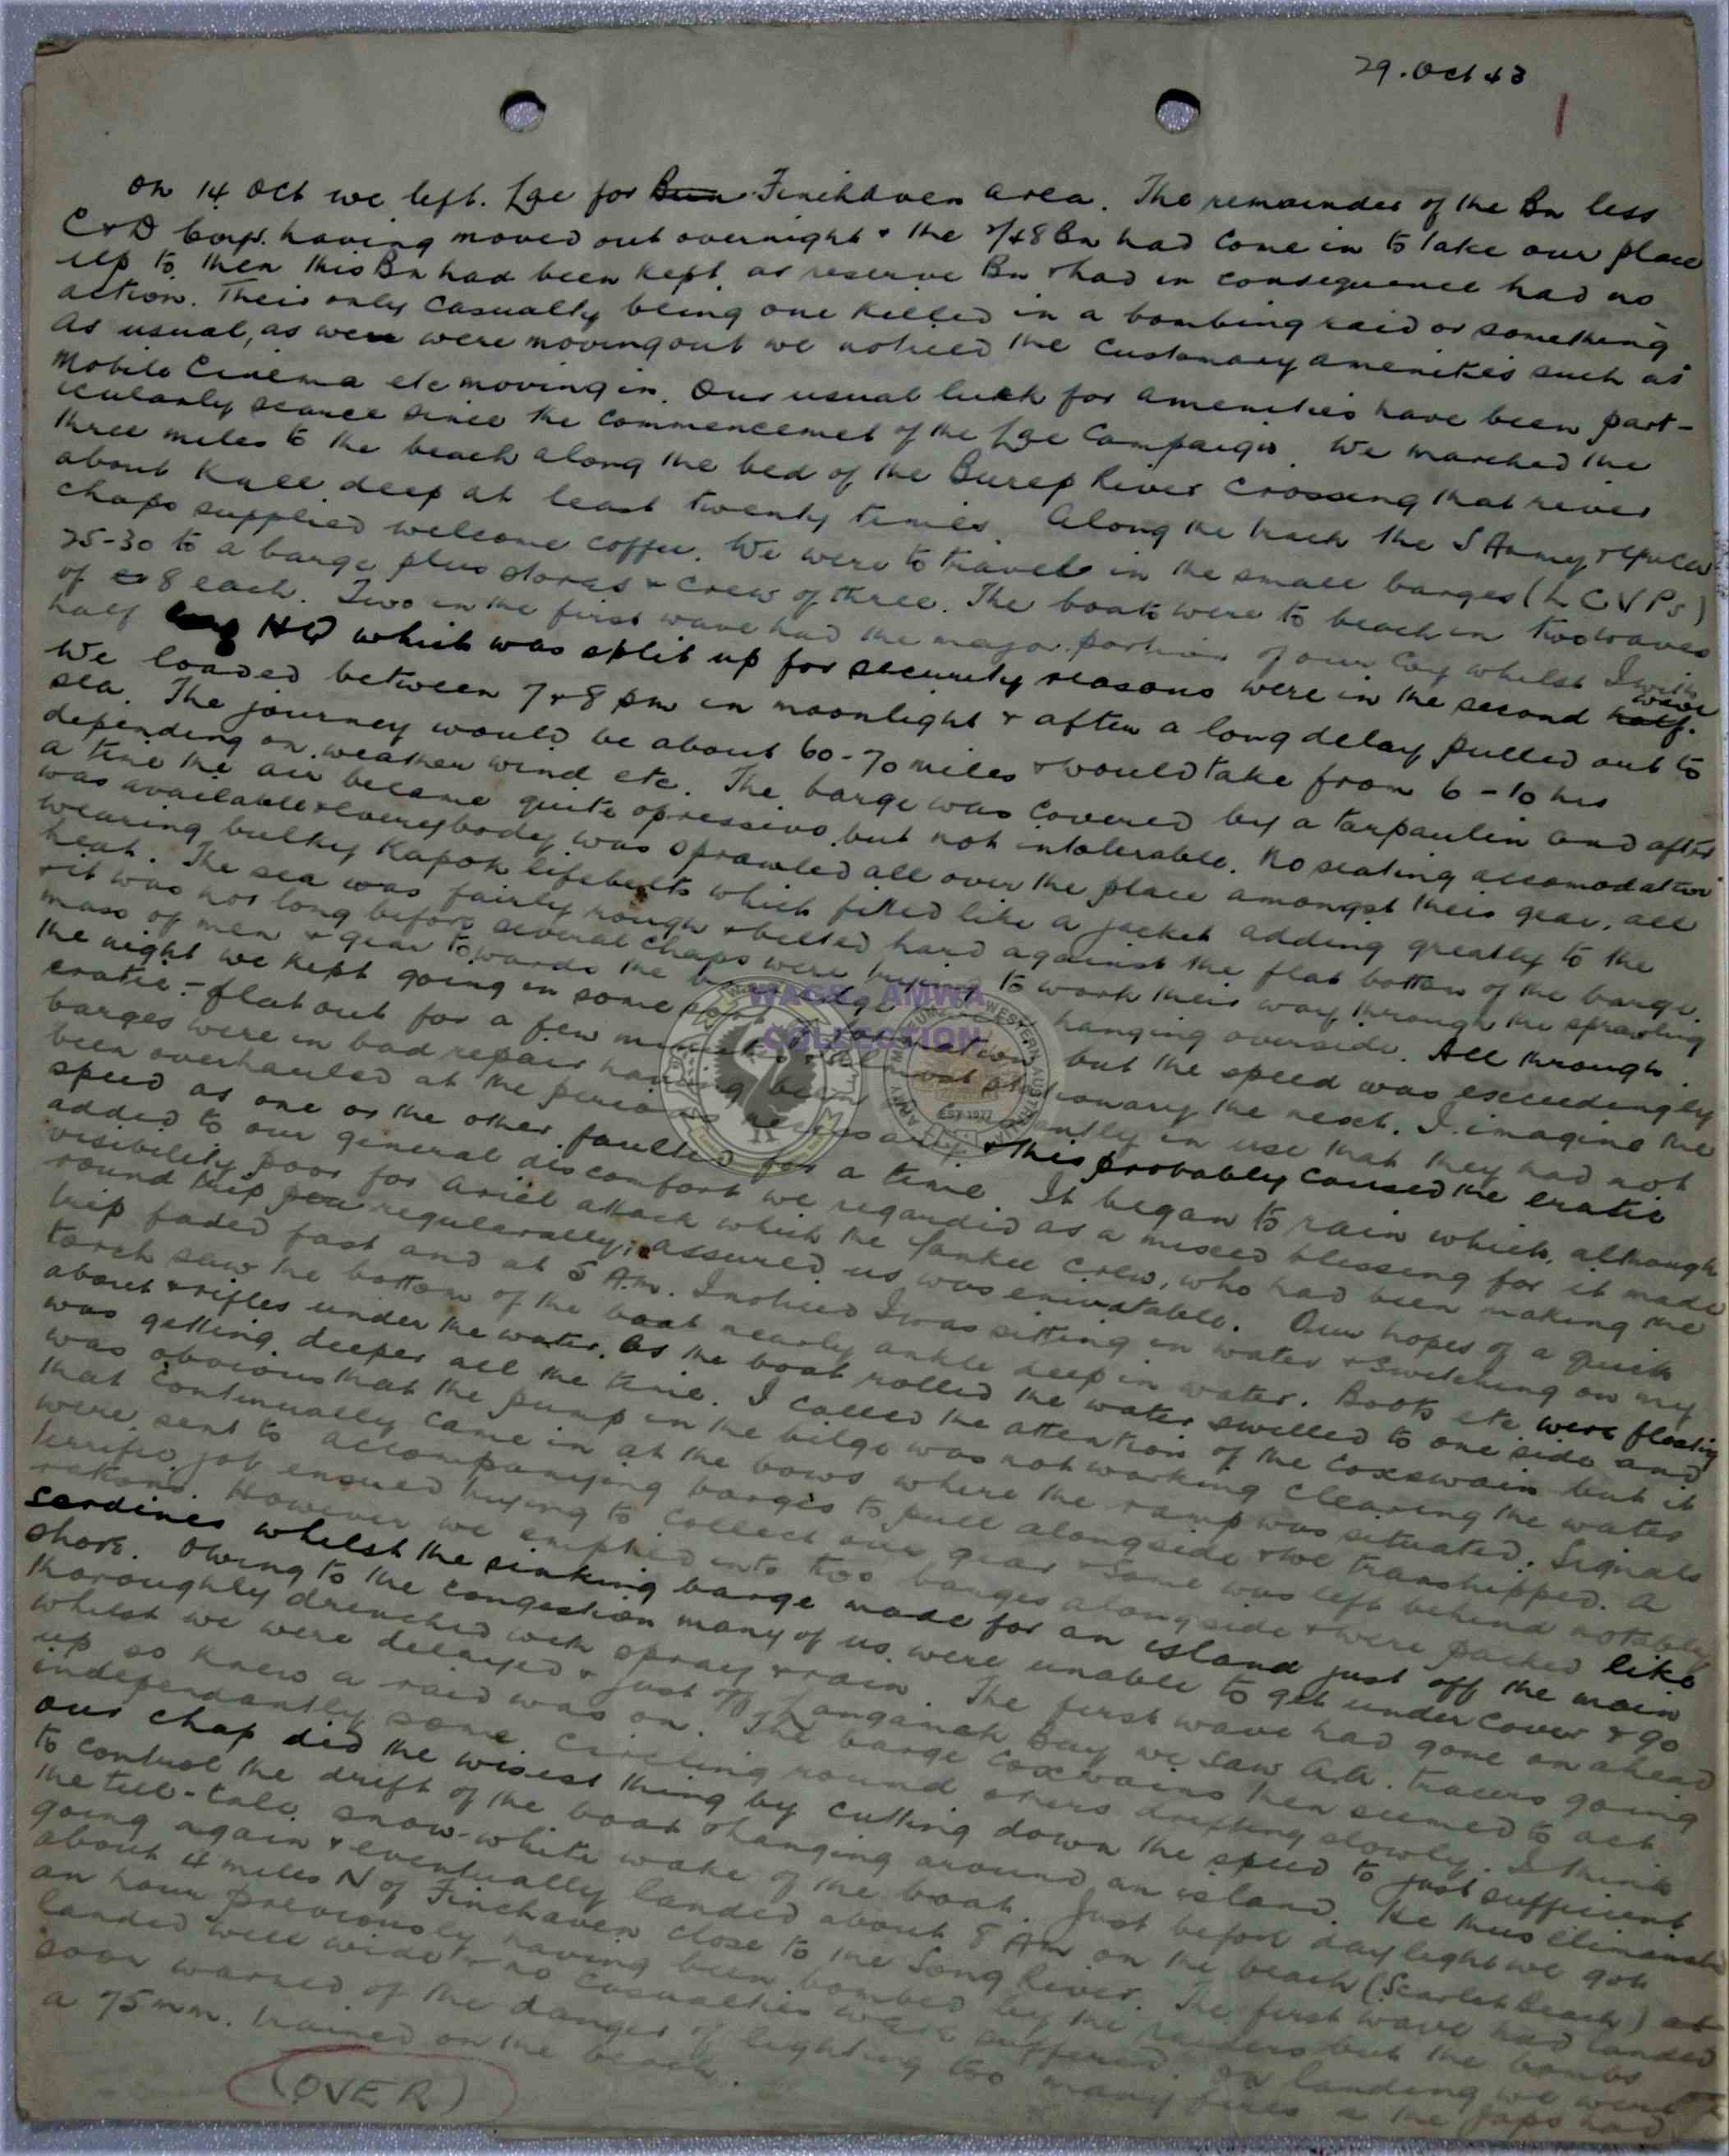 29. Oct 43
1
On 14 Oct we left. Lae for Bun Finchhaven area. The remainder of the Bn less
C & D Coys. having moved out overnight & the 2/48 Bn had come in to take our place
up to then this Bn had been kept as reserve Bn & had in consequence had no
action. Their only casualty being one killed in a bombing raid or something
As usual, as were were moving out we noticed the customary amenities such as
Mobile Cinema etc moving in. Our usual luck for amenities have been part-
icularly scarce since the commencemet of the Lae Campaign. We marched the
three miles to the beach along the bed of the Burep River crossing that river
about knee deep at least twenty times. Along the track the S Army
chaps supplied welcome coffee. We were to travel in the small barges (L C V Ps)
25-30 to a barge plus stores & crew of three. The boats were to beach in two waves
of 8 each. Two in the first wave had the major portion of our Coy whilst I with
half Coy HQ which was split up for security reasons were in the second half. wave
We loaded between 7 & 8 pm in moonlight & after a long delay pulled out to
sea. The journey would be about 60-70 miles & would take from 6-10 hrs
depending on weather wind etc. The barge was covered by a tarpaulin and after
a time the air became quite opressive but not intolerable. No seating accomodation
was available & everybody was sprawled all over the place amongst their gear, all
wearing bulky Kapok lifebelts which fitted like a jacket adding greatly to the
heat. The sea was fairly rough & belted hard against the flat bottom of the barge
& it was not long before several chaps were trying to work their way through the sprawling
mass of men & gear towards the hanging overside. All through
the night we kept going in some sort of formation but the speed was exceedingly
eratic - flat out for a few minutes & almost stationary the next. I imagine the
barges were in bad repair having been constantly in use that they had not
been overhauled at the periods necessary & this probably caused the eratic
speed as one or the other faulted for a time. It began to rain which, although
added to our general discomfort we regarded as a mixed blessing for it made
visibility poor for ariel attack which the Yankee crew, who had been making the
round trip regularally, assured us was enivatable. Our hopes of a quick
trip faded fast and at 5 A.m. I noticed I was sitting in water & switching on my
torch saw the bottom of the boat nearly ankle deep in water. Boots etc were floating
about & rifles under the water. As the boat rolled the water swelled to one side and
was getting deeper all the time. I called the attention of the coxswain but it
was obvious that the pump in the bilge was not working clearing the water
that continually came in at the bows where the ramp was situated. Signals
were sent to accompanying barges to pull alongside & we transhipped. A
terrific job ensued trying to collect our gear & some was left behind notably
rations. However we emptied into two barges alongside & were packed like
sardines whilst the sinking barge made for an island just off the main
shore. Owing to the congestion many of us were unable to get under cover & go
thoroughly drenched with spray & rain. The first wave had gone on ahead
whilst we were delayed & just off Langamak Bay we saw A.A. tracers going
up so knew a raid was on. The barge coxwains then seemed to act
independantly some circling round others drifting slowly. I think
our chap did the wisest thing by cutting down the speed to just sufficient
to control the drift of the boat & hanging around an island. He thus eliminated
the tell-tale snow-white wake of the boat. Just before daylight we got
going again & eventually landed about 8 AM on the beach (Scarlet Beach) at
about 4 miles N of Finchaven close to the Song River. The first wave had landed
an hour previously having been bombed by the raiders but the bombs
landed well wide & no casualties were suffered. On landing we were
soon warned of the danger of lighting too many fires as the Japs had
a 75 mm. trained on the beach.
(OVER)
WAGS AMWA
COLLECTION
EST 1977